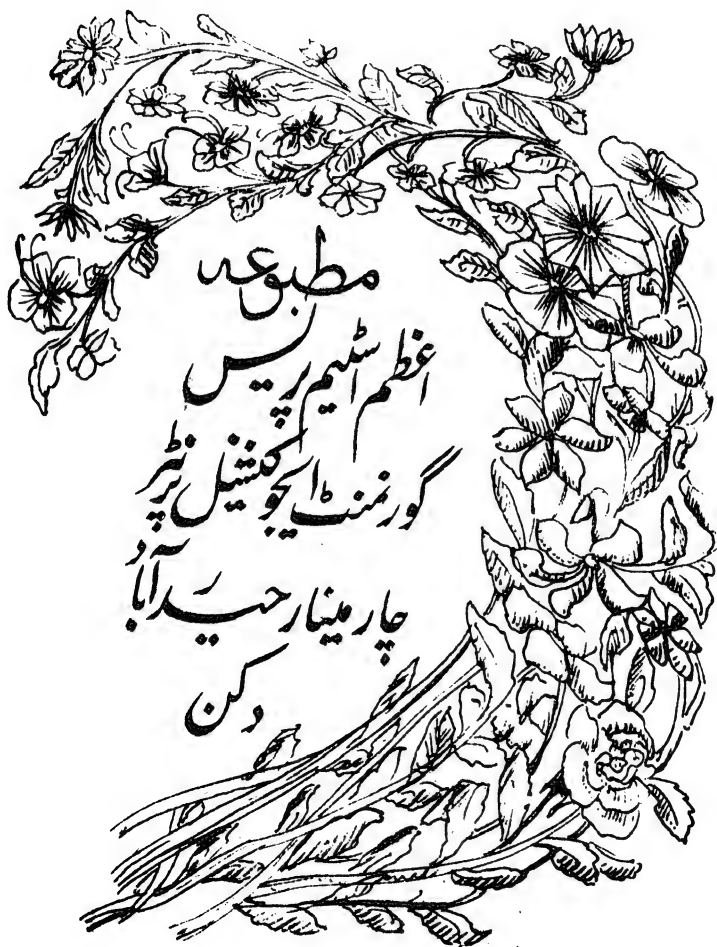 مطبوعہ
اعظم اسٹیم پریس
گورنمنٹ ایجوکیشنل پرنٹر
چارمینار حیدرآباد
دکن